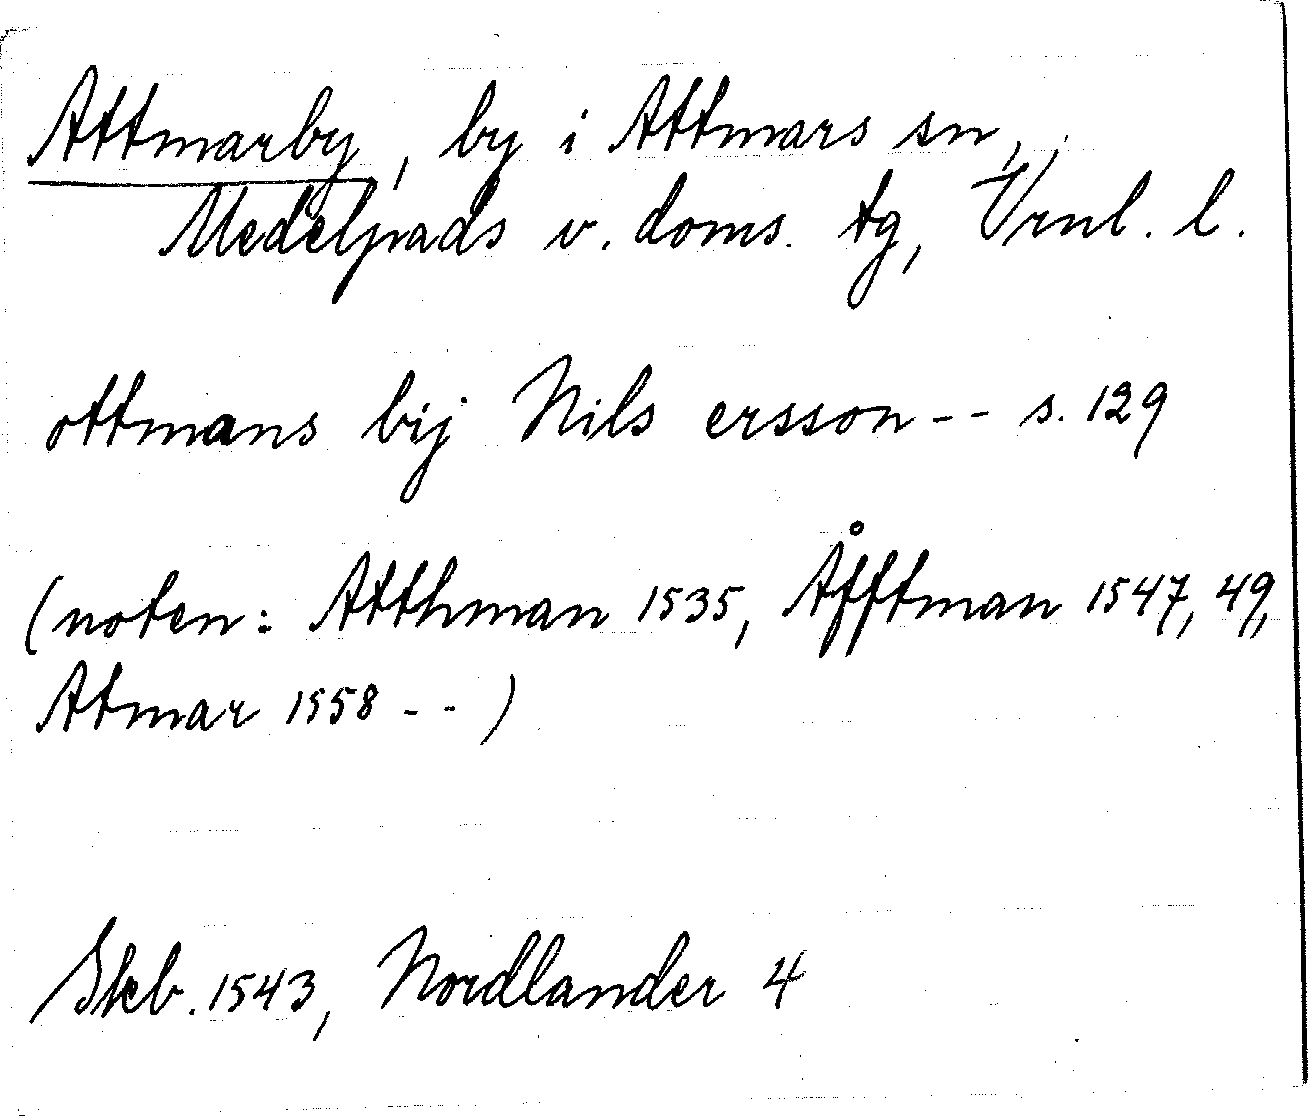 Attmarby, by i Attmars sn,
Medelpads v. doms. tg, Vrnl. l.
ottmans bij Nils ersson -- s. 129
(noten: Atthman 1535, Åfftman 1547, 49,
Atmar 1558 -- )
Skb. 1543, Nordlander 4